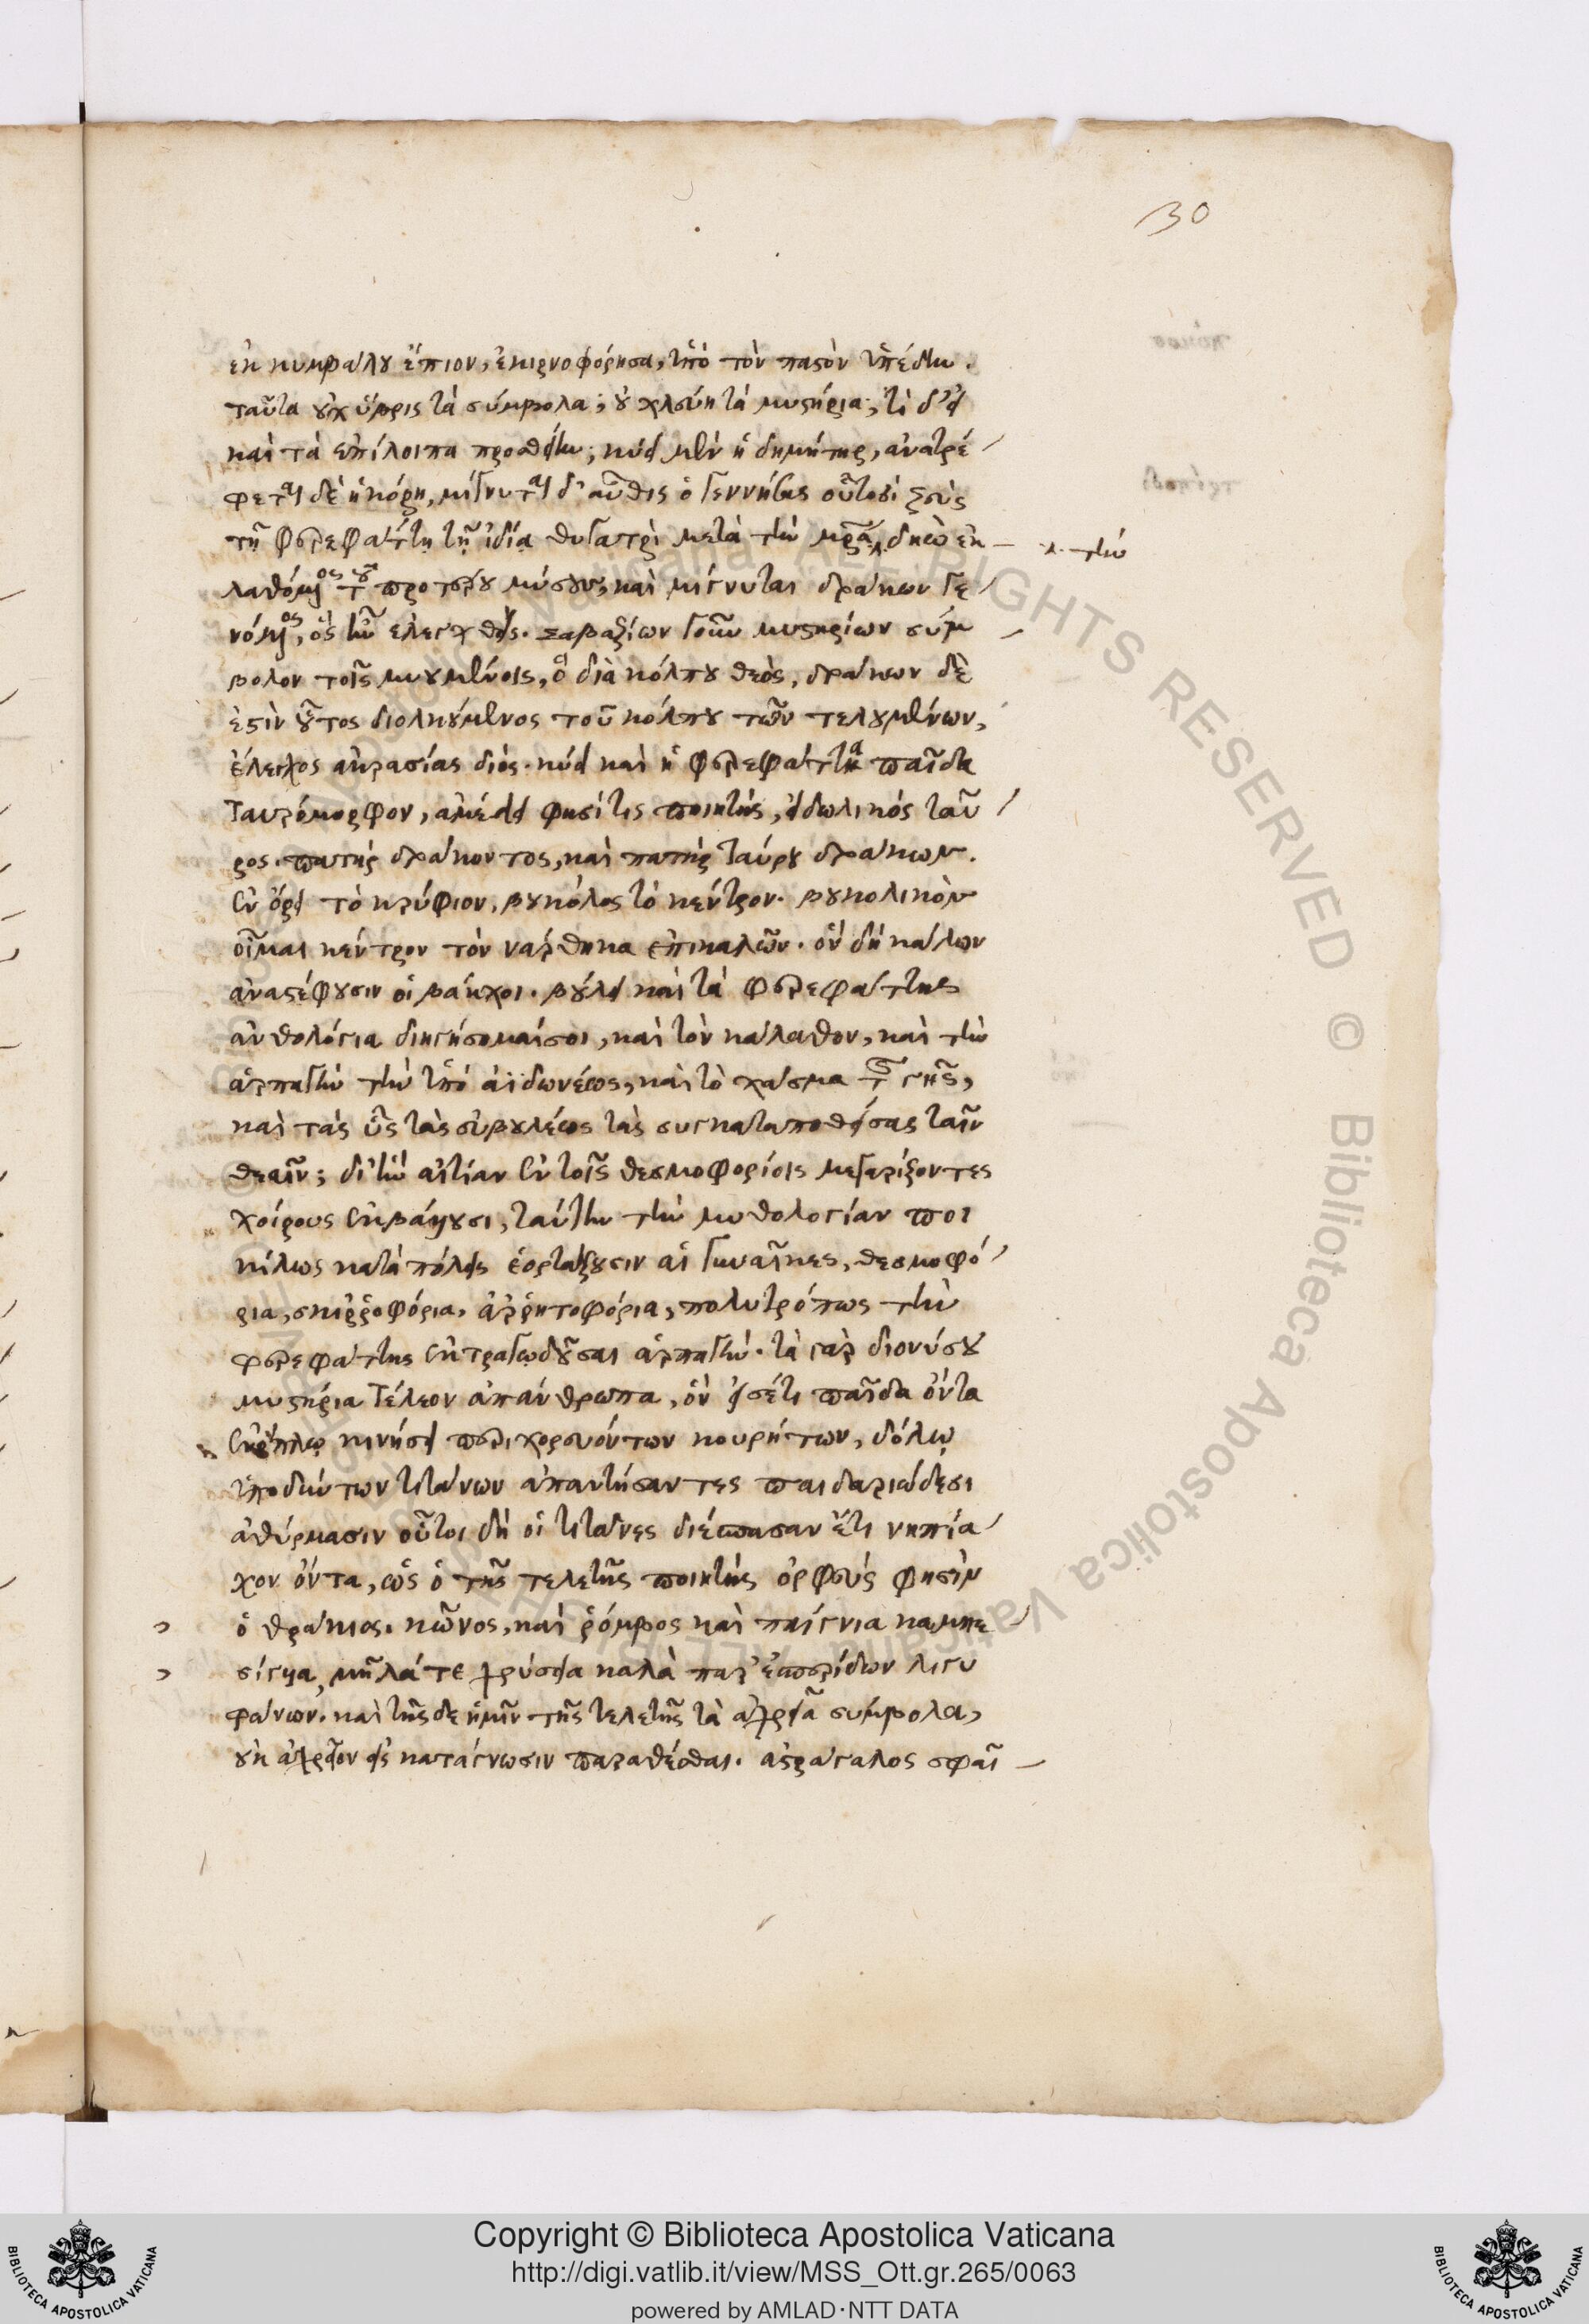 30
ἐκ κυμβάλου ἔπιον, ἐκιρνοφόρησα, ὑπὸ τὸν παστὸν ὑπέδυν.
ταῦτα οὐχ ὕβρις τὰ σύμβολα; οὐ χλεύη τὰ μυστήρια; τί δ' εἰ
καὶ τὰ ἐπίλοιπα προσθείην; κύει μὲν ἡ δημήτηρ, ἀνατρέ
φεται δὲ ἡ κόρη, μίγνυται δ' αὖθις ὁ γεννήσας οὑτοσὶ ζεὺς
τῇ φερεφάττῃ τῇ ἰδίᾳ θυγατρὶ μετὰ τὴν μρ̃α, δηὼ ἐκ
τὴν
λαθόμενος τοῦ προτέρου μύσους, καὶ μίγνυται δράκων γε
νόμενος, ὃς ἦν ἐλεγχθείς. σαβαζίων γοῦν μυστηρίων σύμ
βολον τοῖς μυουμένοις, ὁ διὰ κόλπου θεὸς, δράκων δὲ
ἐστὶν οὗτος διελκούμενος τοῦ κόλπου τῶν τελουμένων,
ἔλεγχος ἀκρασίας διός. κύει καὶ ἡ φερεφάττα παῖδα
ταυρόμορφον, ἀμέλει φησί τις ποιητὴς, εἰδωλικός ταῦ
ρος. πατὴρ δράκοντος, καὶ πατὴρ ταύρου δράκων.
ἐν ὄρει τὸ κρύφιον, βουκόλος τὸ κέντρον. βουκολικὸν
οἶμαι κέντρον τὸν νάρθηκα ἐπικαλῶν. ὃν δὴ καλον
ἀναστέφουσιν οἱ βάκχοι. βούλει καὶ τὰ φερεφάττης
ἀνθολόγια διηγήσομαί σοι, καὶ τὸν κάλαθον, καὶ τὴν
ἁρπαγὴν τὴν ὑπὸ ἀϊδωνέως, καὶ τὸ χάσμα τῆς γῆς,
καὶ τὰς ὗς τὰς εὐβουλέως τὰς συγκαταποθείσας ταῖν
θεαῖν; δι' ἣν αἰτίαν ἐν τοῖς θεσμοφορίοις μεγαρίζοντες
χοίρους ἐκβάλλουσι, ταύτην τὴν μυθολογίαν ποι
κίλως κατὰ πόλεις ἑορτάζουσιν αἱ γυναῖκες, θεσμοφό
ρια, σκιῤῥοφόρια, ἀῤῥητοφόρια, πολυτρόπως τὴν
φερεφάττης ἐκτραγῳδοῦσαι ἁρπαγήν. τὰ γὰρ διονύσου
μυστήρια τέλεον ἀπάνθρωπα, ὃν εἰσέτι παῖδα ὄντα
ἐνόπλῳ κινήσει περιχορευόντων κουρήτων, δόλῳ
ὑποδύντων τιτάνων ἀπαντήσαντες παιδαριώδεσι
ἀθύρμασιν οὗτοι δὴ οἱ τιτᾶνες διέσπασαν ἔτι νηπία
χον ὄντα, ὡς ὁ τῆς τελετῆς ποιητὴς ὀρφεύς φησὶν
ὁ θράκιος. κῶνος, καὶ ῥόμβος καὶ παίγνια καμπε
σίγυα, μῆλά τε χρύσεα καλὰ παρ' ἑσπερίδων λιγυ
φώνων. καὶ τῆς δε ἡμῖν τῆς τελετῆς τὰ ἀχρεῖα σύμβολα,
οὐκ ἀχρεῖον εἰς κατάγνωσιν παραθέσθαι. ἀστράγαλος σφαῖ
Copyright © Biblioteca Apostolica Vaticana
http://digi.vatlib.it/view/MSS_Ott.gr.265/0063
powered by AMLAD·NTT DATA